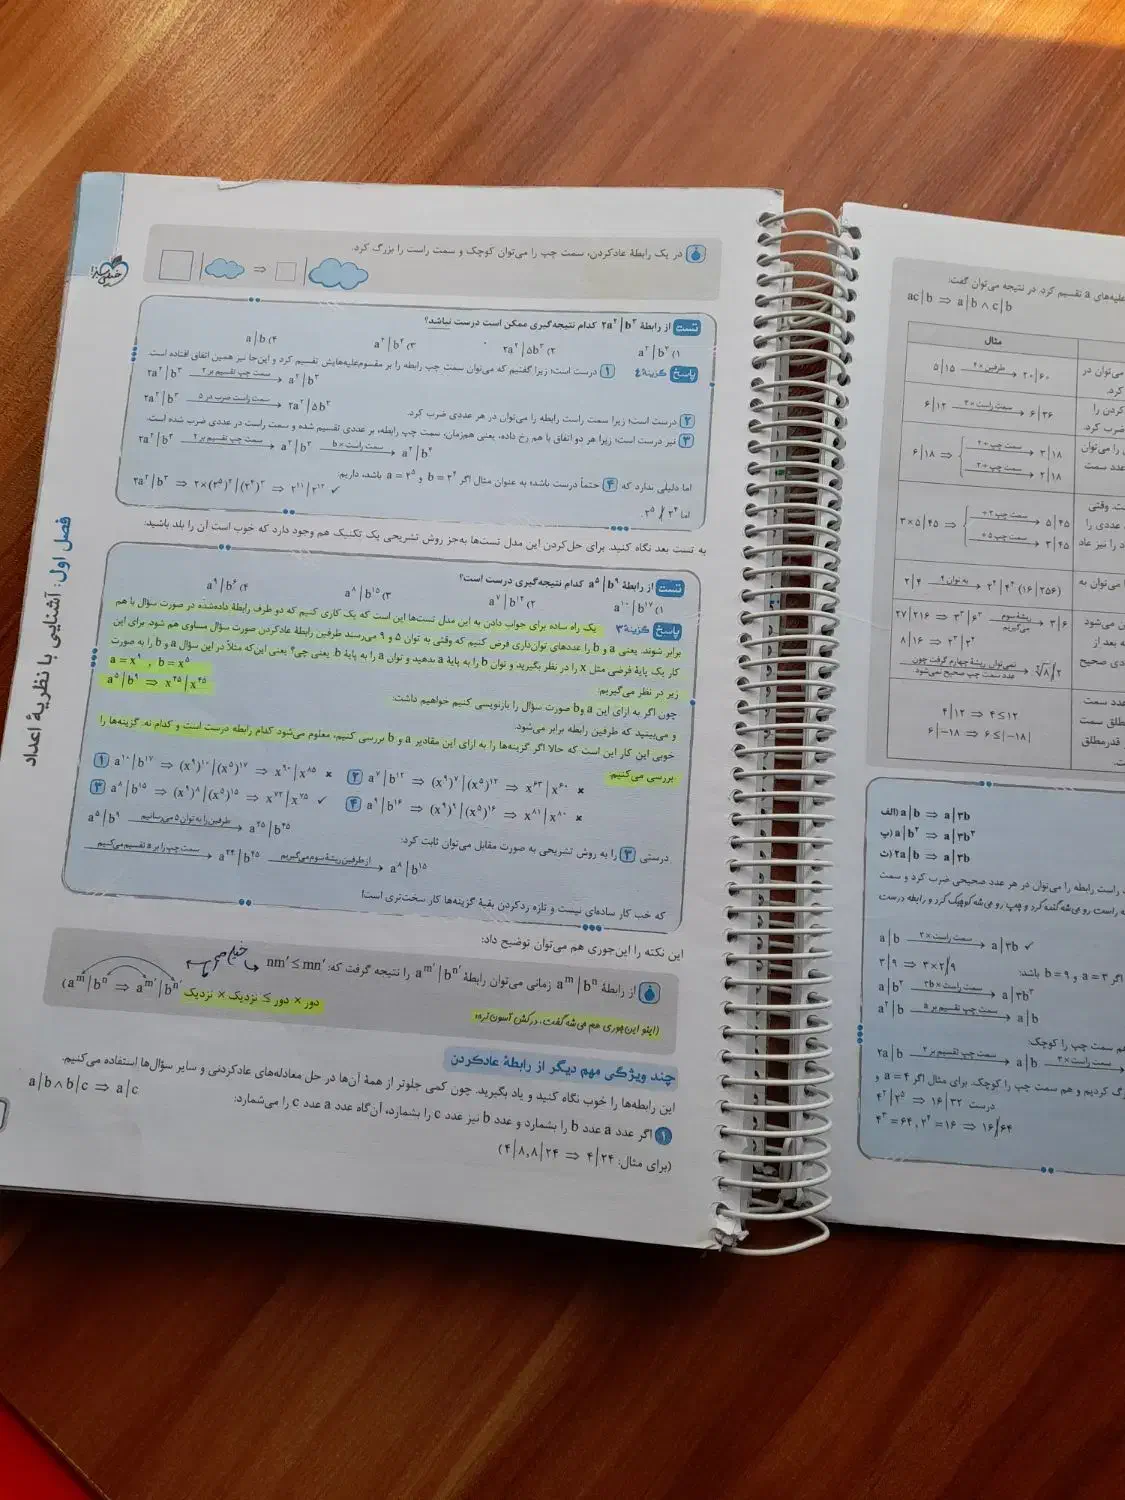 در یک رابطهٔ عادکردن، سمت چپ را می‌توان کوچک و سمت راست را بزرگ کرد.
تست از رابطهٔ ۲a²|b³ کدام نتیجه‌گیری ممکن است درست نباشد؟
۱) a²|b³ ۲) ۲a²|۵b³ ۳) a²|b⁴ ۴) a|b
پاسخ گزینهٔ ۴ ۱ درست است؛ زیرا گفتیم که می‌توان سمت چپ رابطه را بر مقسوم‌علیه‌هایش تقسیم کرد و این‌جا نیز همین اتفاق افتاده است.
۲a²|b³ سمت چپ تقسیم بر ۲ → a²|b³
۲a²|b³ سمت راست ضرب در ۵ → ۲a²|۵b³
۲ درست است؛ زیرا سمت راست رابطه را می‌توان در هر عددی ضرب کرد.
۳ نیز درست است؛ زیرا هر دو اتفاق با هم رخ داده، یعنی هم‌زمان، سمت چپ رابطه، بر عددی تقسیم شده و سمت راست در عددی ضرب شده است.
۲a²|b³ سمت چپ تقسیم بر ۲ → a²|b³ سمت راست × b → a²|b⁴
اما دلیلی ندارد که ۴ حتماً درست باشد؛ به عنوان مثال اگر b = ۲⁴ و a = ۲⁵ باشد، داریم:
۲a²|b³ ⇒ ۲×(۲⁵)²|(۲⁴)³ ⇒ ۲¹¹|۲¹² ✓
اما ۲⁵∤۲⁴.
به تست بعد نگاه کنید. برای حل‌کردن این مدل تست‌ها به‌جز روش تشریحی یک تکنیک هم وجود دارد که خوب است آن را بلد باشید:
تست از رابطهٔ a⁵|b⁹ کدام نتیجه‌گیری درست است؟
۱) a¹⁰|b¹⁷ ۲) a⁷|b¹² ۳) a⁸|b¹⁵ ۴) a⁹|b
پاسخ گزینهٔ ۳ یک راه ساده برای جواب دادن به این مدل تست‌ها این است که یک کاری کنیم که دو طرف رابطهٔ داده‌شده در صورت سؤال با هم
برابر شوند. یعنی a و b را عددهای توان‌داری فرض کنیم که وقتی به توان ۵ و ۹ می‌رسند طرفین رابطهٔ عادکردن صورت سؤال مساوی هم شود. برای این
کار یک پایهٔ فرضی مثل x را در نظر بگیرید و توان b را به پایهٔ a بدهید و توان a را به پایهٔ b. یعنی چی؟ یعنی این‌که مثلاً در این سؤال a و b را به صورت
زیر در نظر می‌گیریم:
a = x⁹ , b = x⁵
چون اگر به ازای این a و b صورت سؤال را بازنویسی کنیم خواهیم داشت:
a⁵|b⁹ ⇒ x⁴⁵|x⁴⁵
و می‌بینید که طرفین رابطه برابر می‌شود.
خوبی این کار این است که حالا اگر گزینه‌ها را به ازای این مقادیر a و b بررسی کنیم، معلوم می‌شود کدام رابطه درست است و کدام نه. گزینه‌ها را
بررسی می‌کنیم:
۱ a¹⁰|b¹⁷ ⇒ (x⁹)¹⁰|(x⁵)¹⁷ ⇒ x⁹⁰|x⁸⁵ ×
۲ a⁷|b¹² ⇒ (x⁹)⁷|(x⁵)¹² ⇒ x⁶³|x⁶⁰ ×
۳ a⁸|b¹⁵ ⇒ (x⁹)⁸|(x⁵)¹⁵ ⇒ x⁷²|x⁷⁵ ✓
۴ a⁹|b¹⁶ ⇒ (x⁹)⁹|(x⁵)¹⁶ ⇒ x⁸¹|x⁸⁰ ×
درستی ۳ را به روش تشریحی به صورت مقابل می‌توان ثابت کرد:
a⁵|b⁹ طرفین را به توان ۵ می‌رسانیم → a²⁵|b⁴⁵
سمت چپ را بر a تقسیم می‌کنیم → a²⁴|b⁴⁵ از طرفین ریشهٔ سوم می‌گیریم → a⁸|b¹⁵
که خب کار ساده‌ای نیست و تازه ردکردن بقیهٔ گزینه‌ها کار سخت‌تری است!
این نکته را این‌جوری هم می‌توان توضیح داد:
از رابطهٔ aᵐ|bⁿ زمانی می‌توان رابطهٔ aᵐ′|bⁿ′ را نتیجه گرفت که: nm′ ≤ mn′
(اینو این‌جوری هم می‌شه گفت، درکش آسون‌تره: دور × دور ≥ نزدیک × نزدیک (aᵐ|bⁿ ⇒ aᵐ′|bⁿ′)
چند ویژگی مهم دیگر از رابطهٔ عادکردن
این رابطه‌ها را خوب نگاه کنید و یاد بگیرید. چون کمی جلوتر از همهٔ آن‌ها در حل معادله‌های عادکردنی و سایر سؤال‌ها استفاده می‌کنیم.
۱ اگر عدد a عدد b را بشمارد و عدد b نیز عدد c را بشمارد، آن‌گاه عدد a عدد c را می‌شمارد:
a|b ∧ b|c ⇒ a|c
(برای مثال: ۴|۸, ۸|۲۴ ⇒ ۴|۲۴)
فصل اول: آشنایی با نظریهٔ اعداد
علیه‌های a تقسیم کرد. در نتیجه می‌توان گفت:
ac|b ⇒ a|b ∧ c|b
مثال
۵|۱۵ طرفین ×۴ → ۲۰|۶۰
۶|۱۲ سمت راست ×۳ → ۶|۳۶
۶|۱۸ ⇒ سمت چپ ÷۲ → ۳|۱۸
سمت چپ ÷۳ → ۲|۱۸
۳×۵|۴۵ ⇒ سمت چپ ÷۳ → ۵|۴۵
سمت چپ ÷۵ → ۳|۴۵
۲|۴ به توان ۴ → ۲⁴|۴⁴ (۱۶|۲۵۶)
۲۷|۲۱۶ ⇒ ۳³|۶³ ریشهٔ سوم می‌گیریم → ۳|۶
۸|۱۶ ⇒ ۲³|۲⁴
نمی‌توان ریشهٔ چهارم گرفت چون عدد سمت چپ صحیح نمی‌شود
۴|۱۲ ⇒ ۴≤۱۲
۶|−۱۸ ⇒ ۶≤|−۱۸|
الف) a|b ⇒ a|۳b
پ) a|b² ⇒ a|۳b³
ث) ۲a|b ⇒ a|۳b
راست رابطه را می‌توان در هر عدد صحیحی ضرب کرد و سمت
راست رو می‌شه گنده کرد و چپ رو می‌شه کوچیک کرد و رابطه درست
a|b سمت راست ×۳ → a|۳b ✓
اگر a = ۳ و b = ۹ باشد: ۳|۹ ⇒ ۳×۲|۹
a|b² سمت راست ×۳b → a|۳b³
a²|b سمت چپ تقسیم بر a → a|b
هم سمت چپ را کوچک:
۲a|b سمت چپ تقسیم بر ۲ → a|b سمت راست ×۳ →
رگ کردیم و هم سمت چپ را کوچک. برای مثال اگر a = ۴ و
۴²|۲⁵ ⇒ ۱۶|۳۲ درست
۴³ = ۶۴, ۲⁴ = ۱۶ ⇒ ۱۶∤۶۴